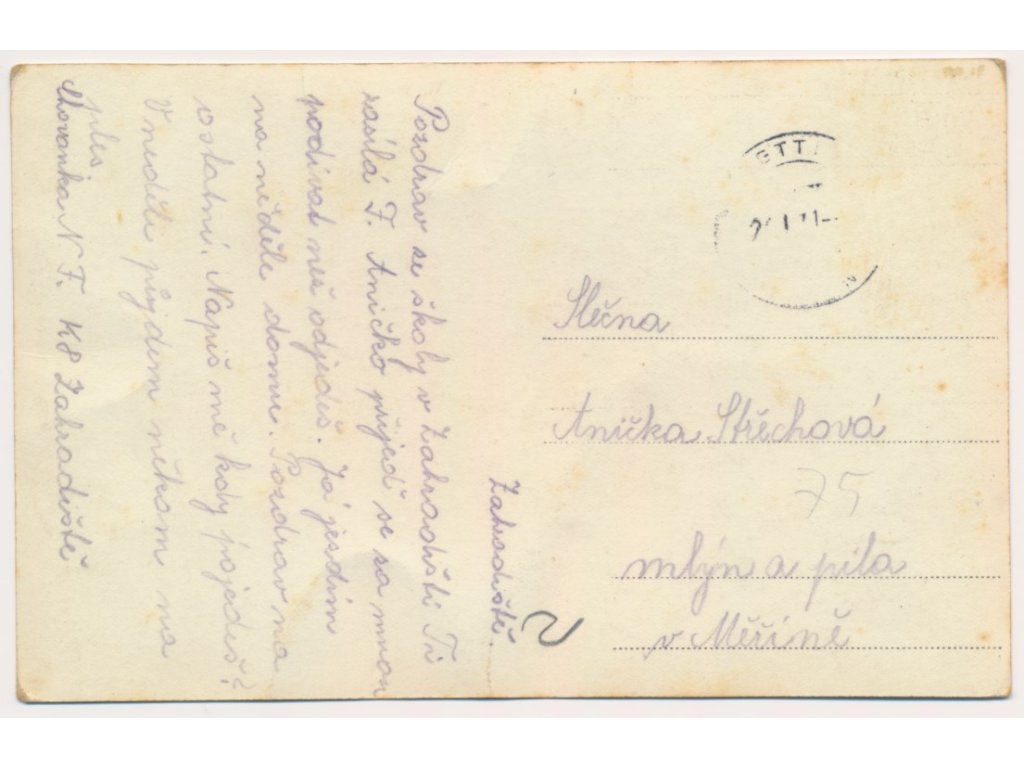 Zahradiště.
Pozdrav se školy v Zahradišti Ti
zasílá F. Aničko přijeď se za mnou
podívat než odjedeš. Já jezdím
na neděle domu. Pozdrav na
ostatní. Napiš mě kdy pojedeš?
V neděli půjdem někam na
ples.
Chovanka N F. K8 Zahradiště
Slečna
Anička Střechová
75
mlýn a pila
v Měříně